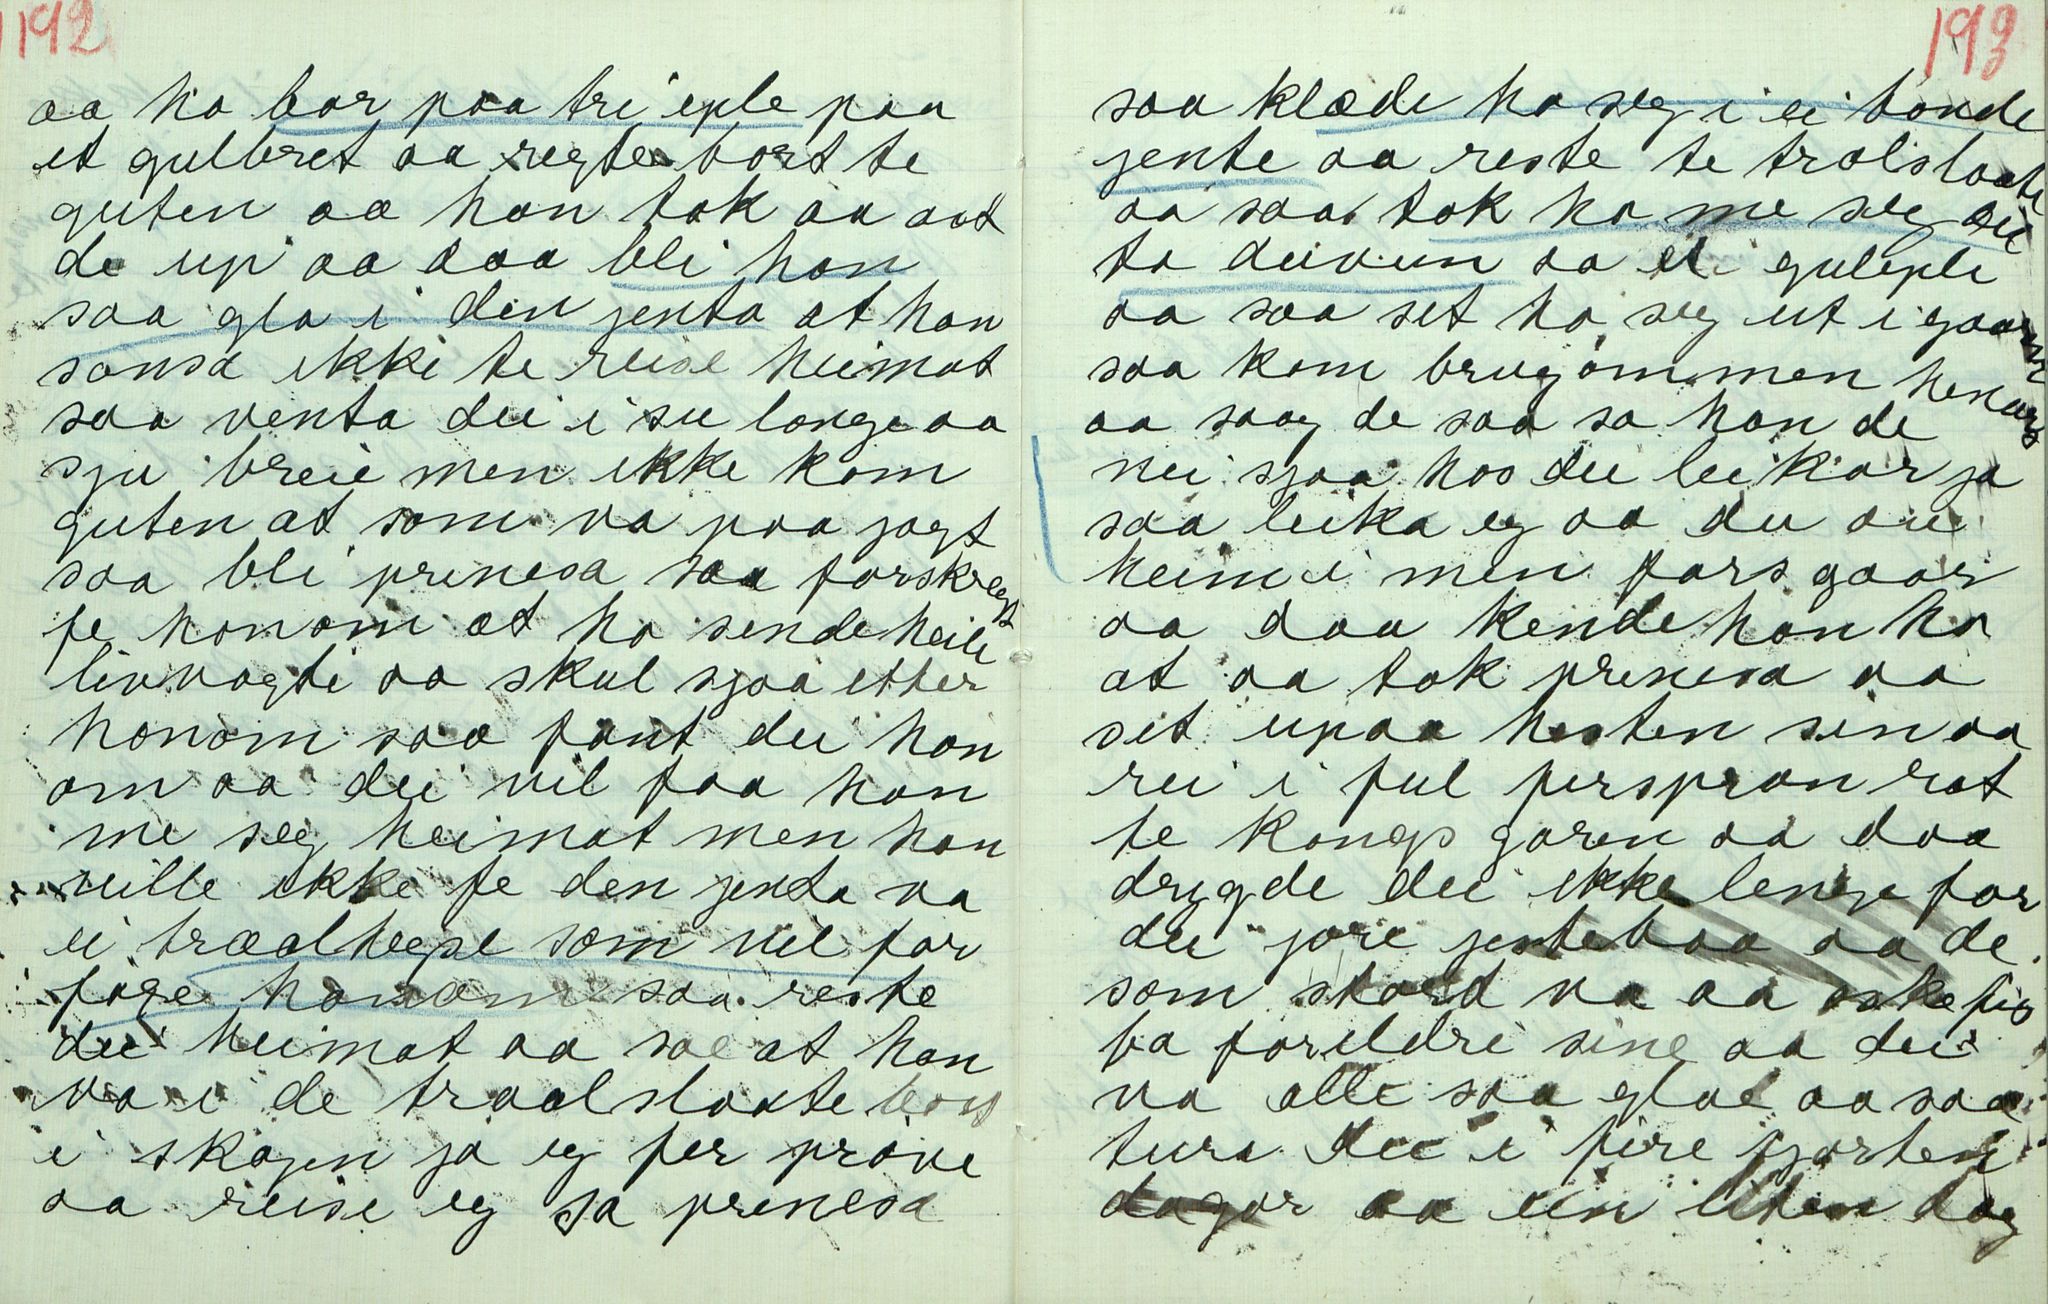 192
aa ho bar paa tri eple paa
et gulbret aa regte bort te
guten aa han tok aa aat
de up aa daa blei han
saa gla i den jenta at han
sansa ikki te reise heimat
saa venta dei i su lange aa
sju breie men ikke kom
guten at som va paa jagt
saa blei prinesa saa forskregt
fe honom at ho sende heile
livvagti aa skul sjaa etter
honom saa fant dei hon
om aa dei vil faa han
me seg heimat men han
ville ikke fe den jenta va
ei trædlheepse som vil for
føre honom saa reiste
dei heimat aa sae at han
va i de traalslaate
i skogen ja eg fer prøve
aa reise eg sa prinesa
193
saa klæde ho seg i ei bonde
jente aa reste te trolslaate
aa saa tok ho me seg
to deivun aa ei guleple
aa saa set ho seg ut i gaaren
saa kom brugommen
aa saag de saa sa han de
nei sjaa hos dei leikar ja
saa leika eg aa du au
heime i men fars gaar
aa daa kende han ho
at aa tok prinesa aa
set upaa hesten sin aa
rei i ful firspron rat
te kongs garen aa daa
drygde dei ikke lenge før
dei jore jestebaa aa de
som stord va aa askefis
ba foreldre sine aa dei
va alle saa glae aa saa
tura dei i fire fjorten
dagar aa ein liten dag